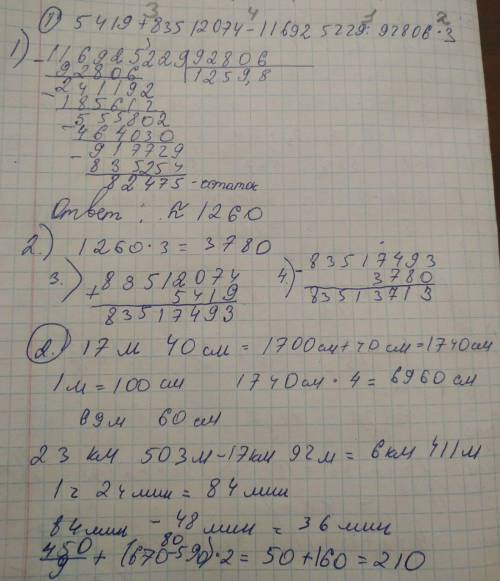 1) 5419+83512074-116925229:92806·3
3 4 1 2
1) 116925229 | 92806
92806 | 1259,8
241192
185612
555802
464030
917729
835254
82475 - остаток
Ответ: ≈ 1260
2.) 1260·3 = 3780
3.) 83512074 4.) 83517493
+ 5419 - 3780
83517493 83513713
2. 17 м 40 см = 1700см+40см=1740см
1м = 100 см 1740см·4 = 6960 см
69м 60 см
23 км 503м-17км 92м = 6км 411м
1ч 24 мин = 84 мин
84 мин - 48 мин = 36 мин
80
450/9 + (670-590)·2 = 50+160 = 210